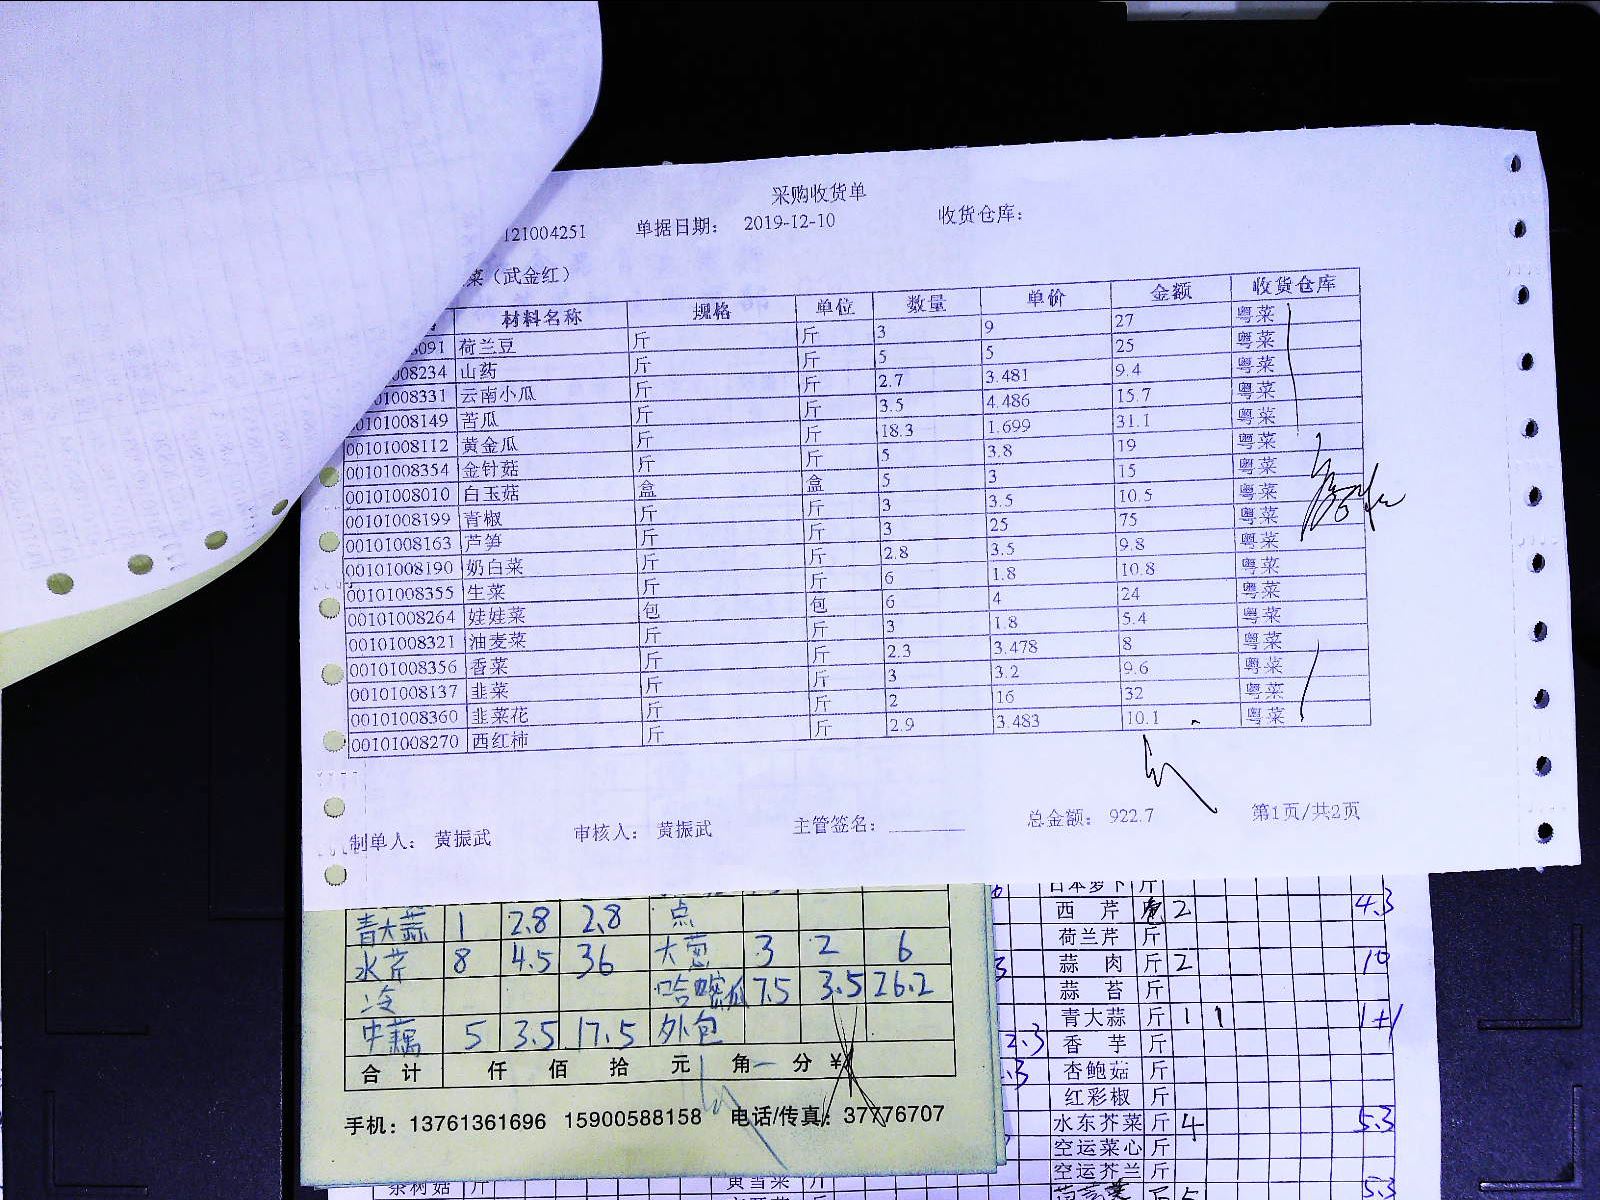 采购收货单
121004251 单据日期： 2019-12-10 收货仓库：
菜（武金红）
材料名称 规格 单位 数量 单价 金额 收货仓库
091 荷兰豆 斤 斤 3 9 27 粤菜
008234 山药 斤 斤 5 5 25 粤菜
0101008331 云南小瓜 斤 斤 2.7 3.481 9.4 粤菜
0101008149 苦瓜 斤 斤 3.5 4.486 15.7 粤菜
00101008112 黄金瓜 斤 斤 18.3 1.699 31.1 粤菜
00101008354 金针菇 斤 斤 5 3.8 19 粤菜
00101008010 白玉菇 盒 盒 5 3 15 粤菜
00101008199 青椒 斤 斤 3 3.5 10.5 粤菜
00101008163 芦笋 斤 斤 3 25 75 粤菜
00101008190 奶白菜 斤 斤 2.8 3.5 9.8 粤菜
00101008355 生菜 斤 斤 6 1.8 10.8 粤菜
00101008264 娃娃菜 包 包 6 4 24 粤菜
00101008321 油麦菜 斤 斤 3 1.8 5.4 粤菜
00101008356 香菜 斤 斤 2.3 3.478 8 粤菜
00101008137 韭菜 斤 斤 3 3.2 9.6 粤菜
00101008360 韭菜花 斤 斤 2 16 32 粤菜
00101008270 西红柿 斤 斤 2.9 3.483 10.1 粤菜
制单人： 黄振武 审核人： 黄振武 主管签名： 总金额： 922.7 第1页/共2页
青大蒜 1 2.8 2.8 点
水芹 8 4.5 36 大葱 3 2 6
冷 哈密瓜 7.5 3.5 26.2
中藕 5 3.5 17.5 外包
合计 仟 佰 拾 元 角 分 ¥
手机：13761361696 15900588158 电话/传真：37776707
日本萝卜 斤
西芹 2 4.3
荷兰芹 斤
蒜肉 斤 2 10
蒜苔 斤
青大蒜 斤 1 1 1+1
2.3 香芋 斤
.3 杏鲍菇 斤
红彩椒 斤
水东芥菜 斤 4 5.3
空运菜心 斤
空运芥兰 斤
5.3
茶树菇 斤 黄雪菜 斤